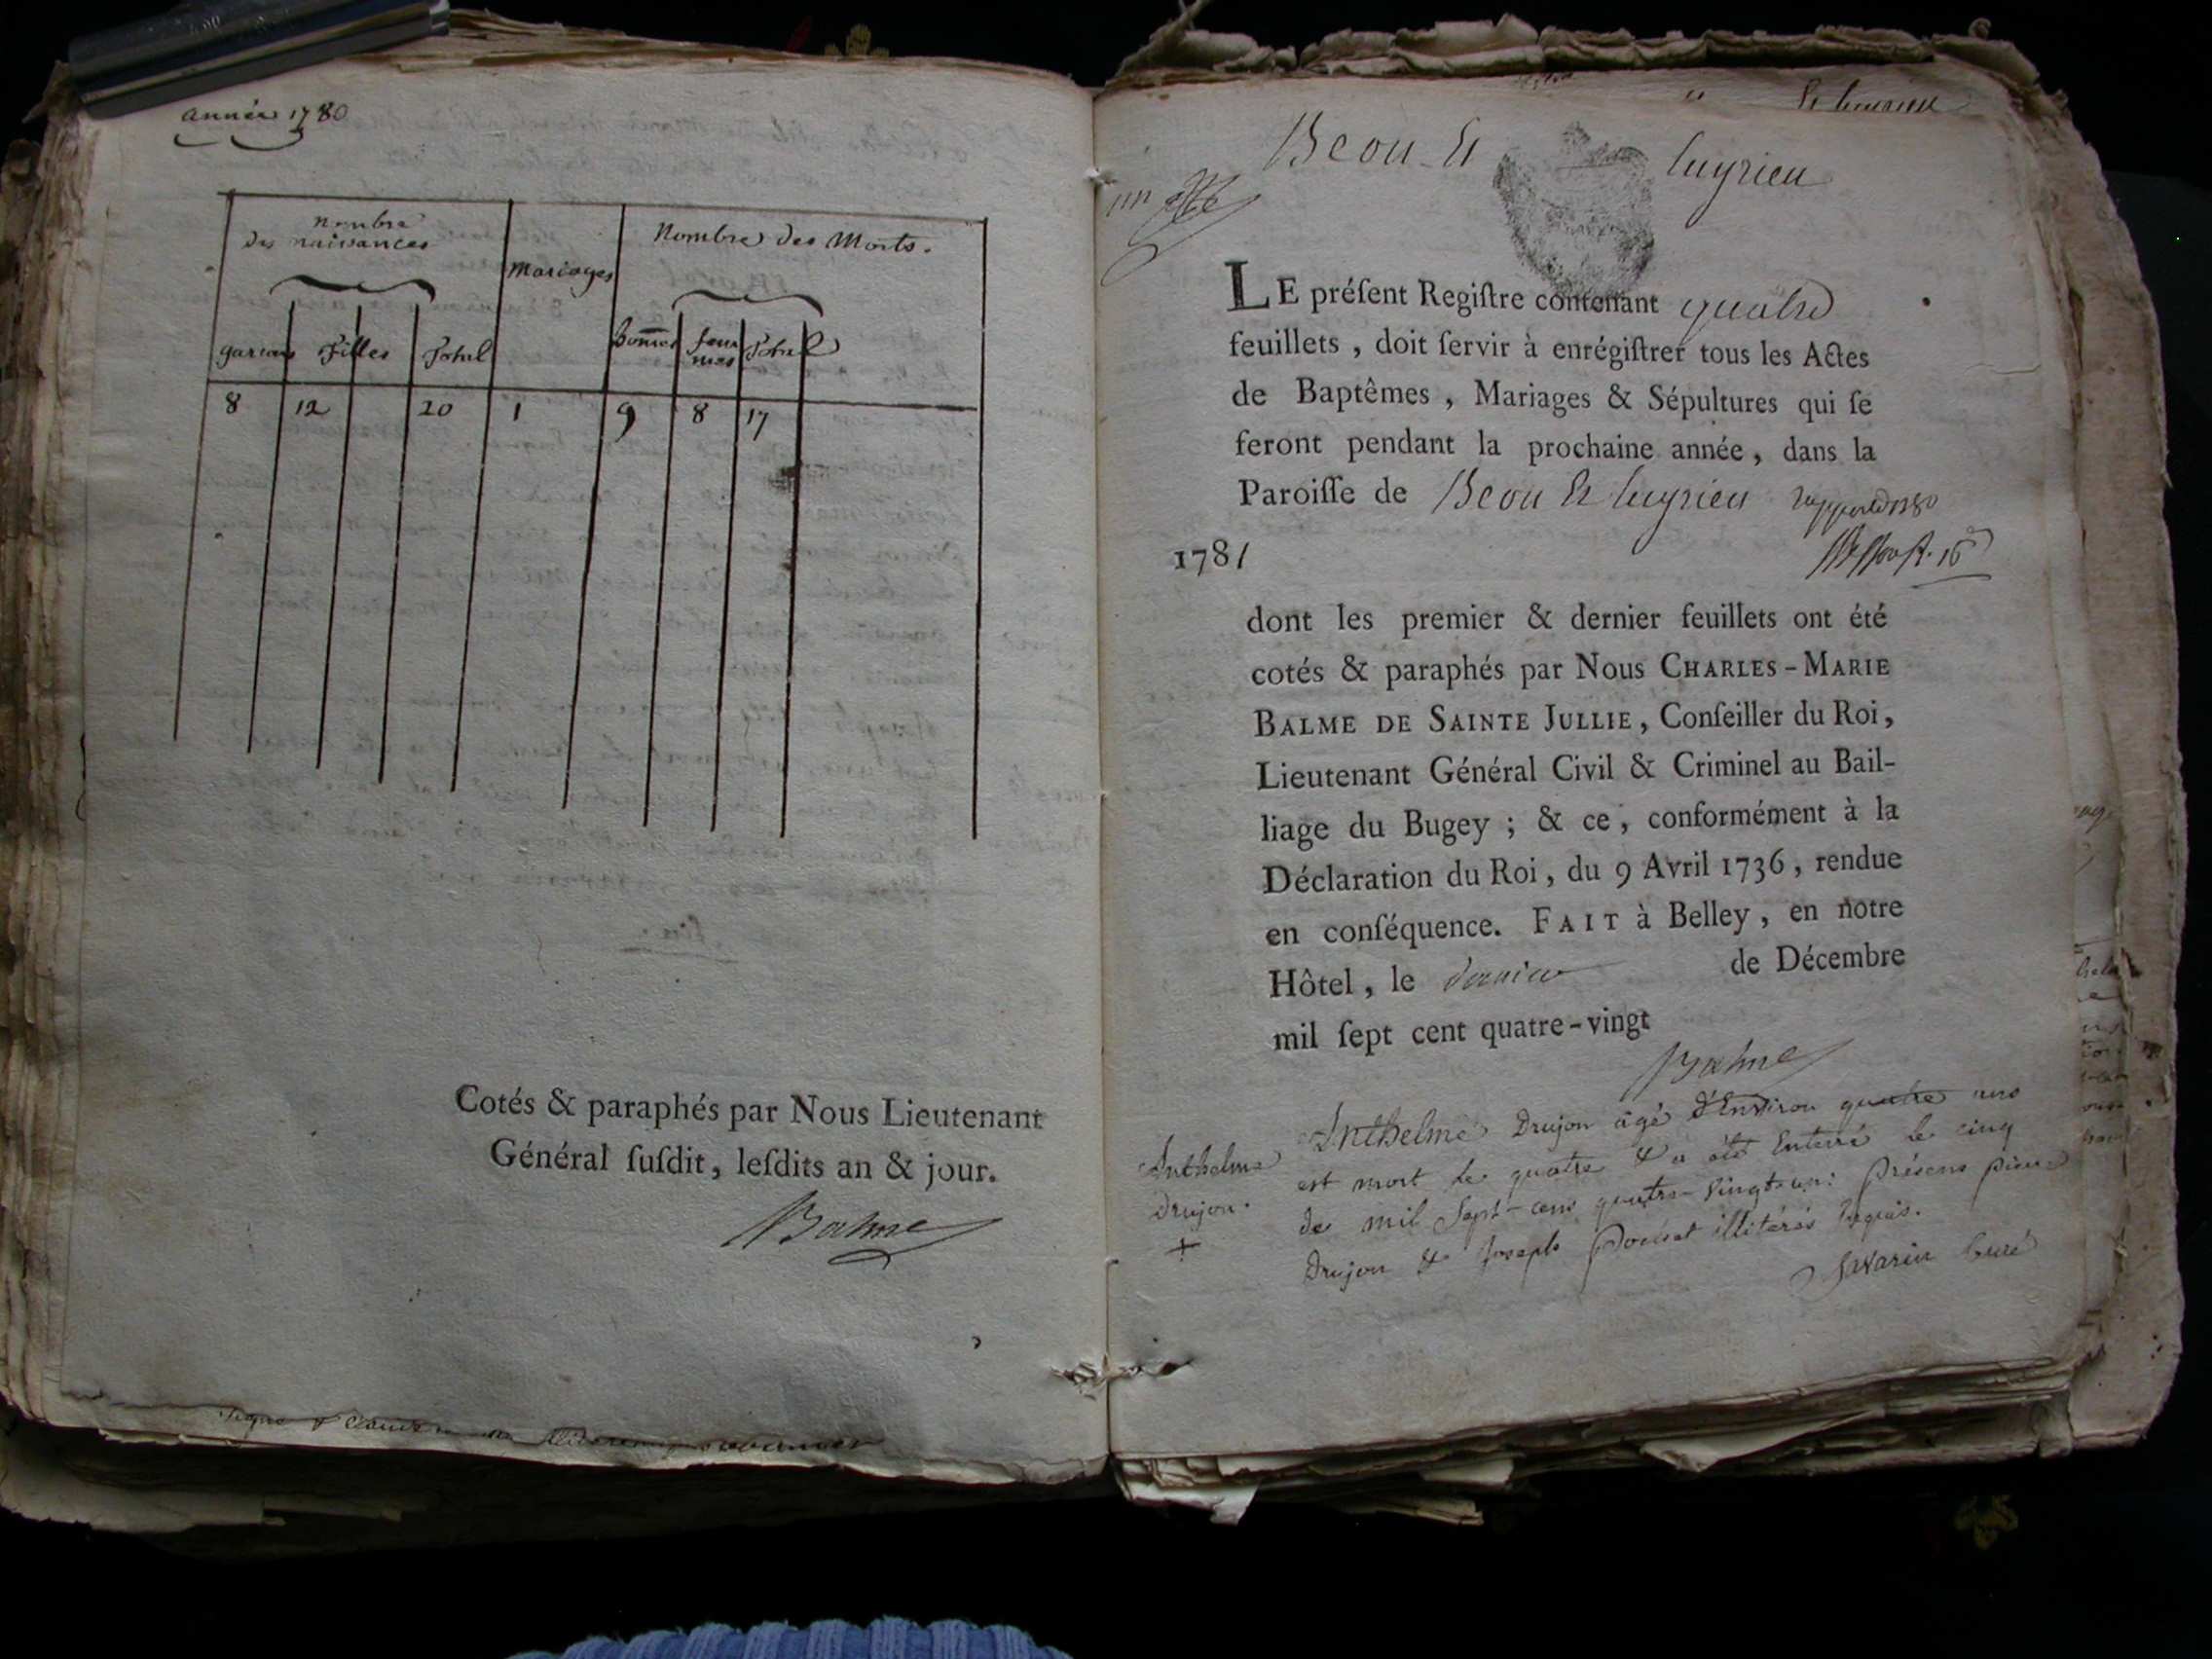 année 1780
nombre
des naissances
Mariages
Nombre des Morts.
garçons Filles Total
hom̄es fem
mes Total
8 12 20 1 9 8 17
Cotés & paraphés par Nous Lieutenant
Général ſuſdit, leſdits an & jour.
Balme
Beou Et Luyrieu
LE préſent Regiſtre contenant quatre
feuillets, doit ſervir à enrégiſtrer tous les Actes
de Baptêmes, Mariages & Sépultures qui ſe
feront pendant la prochaine année, dans la
Paroiſſe de Beou Et Luyrieu
1781
dont les premier & dernier feuillets ont été
cotés & paraphés par Nous CHARLES-MARIE
BALME DE SAINTE JULLIE, Conſeiller du Roi,
Lieutenant Général Civil & Criminel au Bail-
liage du Bugey ; & ce, conformément à la
Déclaration du Roi, du 9 Avril 1736, rendue
en conſéquence. FAIT à Belley, en notre
Hôtel, le dernier de Décembre
mil ſept cent quatre-vingt
Balme
Anthelme
Drujon.
Anthelme Drujon âgé d'Environ quatre ans
est mort le quatre & a été Enterré le cinq
de mil Sept-cens quatre-vingt-un: Présens pierre
Drujon & Joseph illitérés Requis.
Savarin Curé